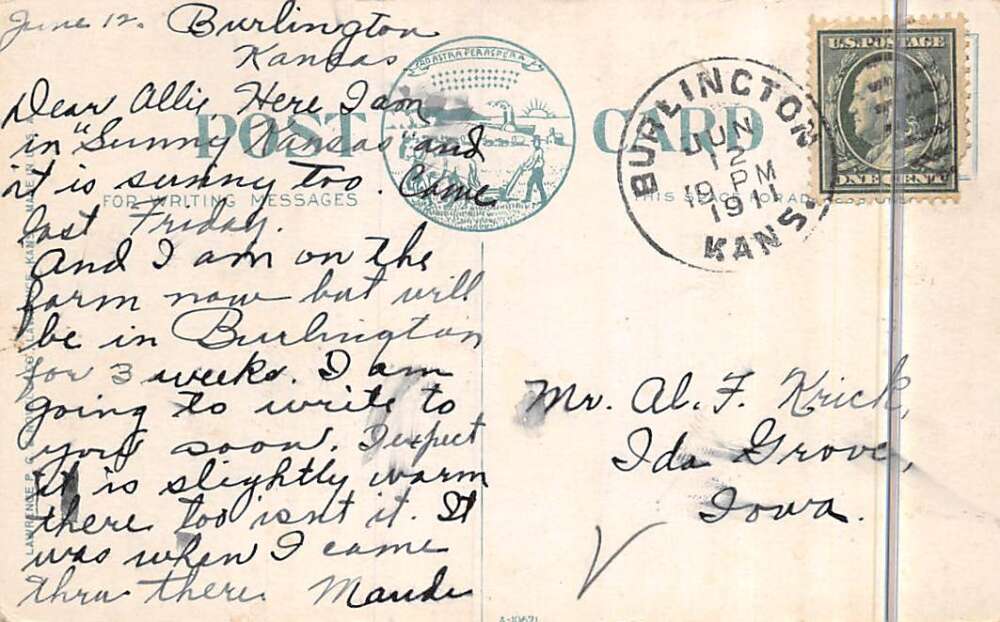 June 12. Burlington
Kansas
Dear Allie, Here I am
in "Sunny Kansas" and
it is sunny too. Came
last Friday.
And I am on the
farm now but will
be in Burlington
for 3 weeks. I am
going to write to
you soon. I expect
it is slightly warm
there too isnt it. It
was when I came
thru there Maude
POST CARD
AD ASTRA PER ASPERA
FOR WRITING MESSAGES
THIS SPACE FOR AD
LAWRENCE
KANS. MADE IN
BURLINGTON
JUN
12
19 PM
1911
KANS.
U.S. POSTAGE
ONE CENT
Mr. Al. F. Krick,
Ida Grove,
Iowa.
A-10671